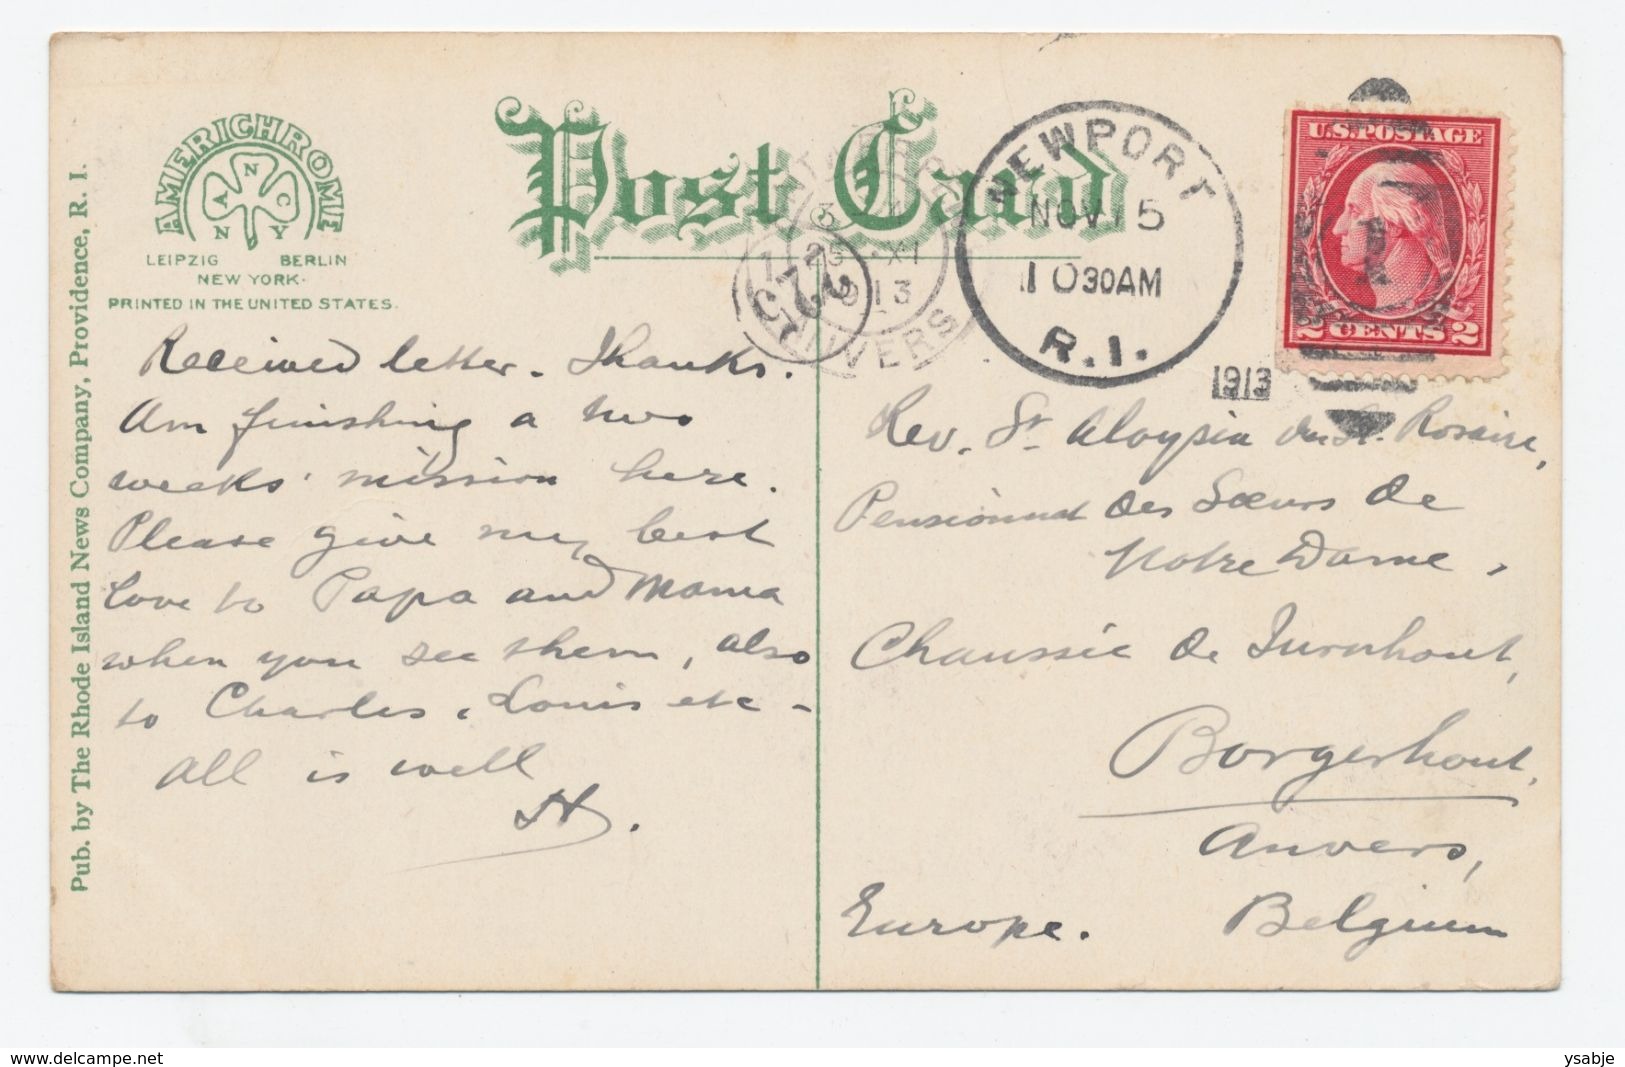 Post Card
AMERICHROME
A N C
N Y
LEIPZIG BERLIN
NEW YORK.
PRINTED IN THE UNITED STATES.
Pub. by The Rhode Island News Company, Providence, R. I.
NEWPORT
NOV 5
10 30AM
R.I.
1913
U.S. POSTAGE
2 CENTS 2
25 XI
13
ANVERS
225
Received letter. Thanks.
Am finishing a two
weeks' mission here.
Please give my best
love to Papa and Mama
when you see them, also
to Charles, Louis etc -
All is well
H.
Rev. Sr Aloysia du St. Rosaire,
Pensionnat des Sœurs de
Notre Dame,
Chaussée de Turnhout,
Borgerhout,
Anvers,
Europe. Belgium
www.delcampe.net
ysabje